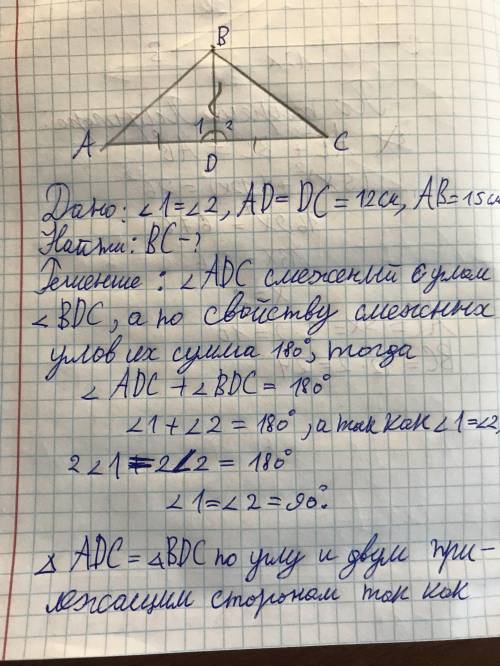 B
1 2
A D C
Дано: ∠1=∠2, AD=DC=12см, AB=15см
Найти: BC-?
Решение: ∠ADC смежный с углом
∠BDC, а по свойству смежных
углов их сумма 180°, тогда
∠ADC +∠BDC = 180°
∠1+∠2 = 180°, а так как ∠1=∠2,
2∠1=2∠2 = 180°
∠1=∠2=90°.
△ADC=△BDC по углу и двум при-
лежащим сторонам так как